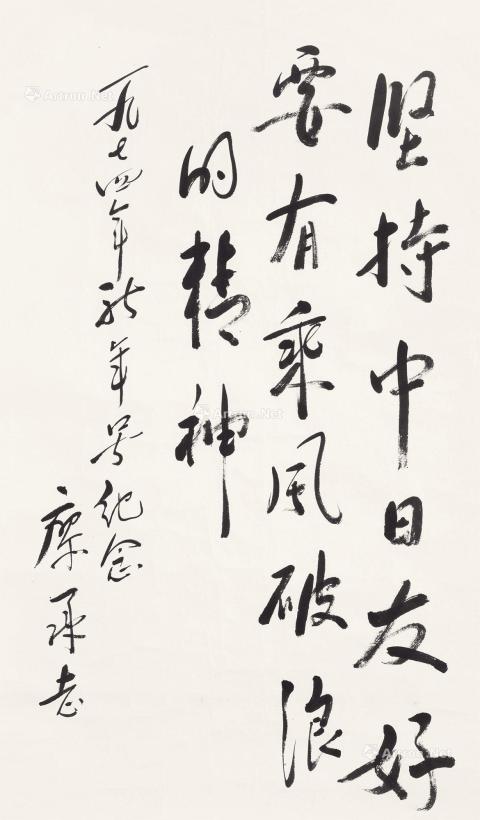 坚持中日友好
要有乘风破浪
的精神
一九七四年新年号纪念
廖承志
Artron.Net
Artron.Net
Artron.Net